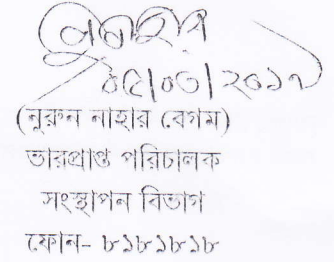 ০৫/০৩/২০১৭
(নুরুন নাহার বেগম)
ভারপ্রাপ্ত পরিচালক
সংস্থাপন বিভাগ
ফোন- ৮১৮১৮১৮